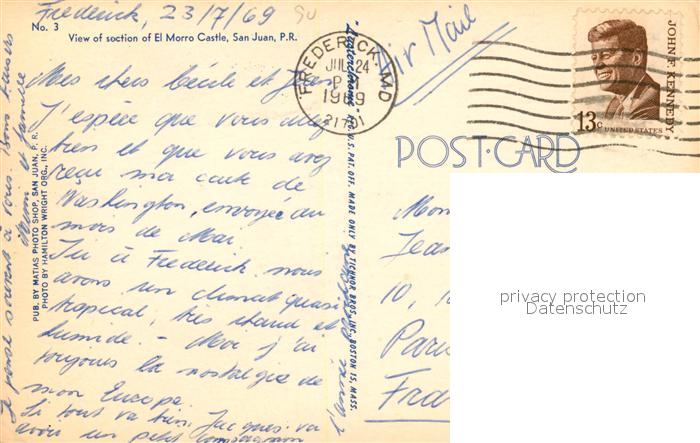 Frederick, 23/7/69
No. 3
View of section of El Morro Castle, San Juan, P.R.
Mes chers Cécile et Jean
J'espère que vous allez
bien et que vous avez
reçu ma carte de
Washington, envoyée au
mois de Mai.
Ici à Frederick nous
avons un climat quasi
tropical, très chaud et
humide. – Moi j'ai
toujours la nostalgie de
mon Europa.
Si tout va bien, Jacques va
avoir un petit compagnon
l'année
Je pense souvent à vous. Bons baisers
et famille
PUB. BY MATIAS PHOTO SHOP, SAN JUAN, P. R.
PHOTO BY HAMILTON WRIGHT ORG., INC.
REG. U.S. PAT. OFF. MADE ONLY BY TICHNOR BROS., INC., BOSTON 15, MASS.
Air Mail
FREDERICK, MD
JUL 24
P
1969
21701
JOHN F. KENNEDY
13c UNITED STATES
POST CARD
Mon
Jean
10,
Paris
Fra
privacy protection
Datenschutz